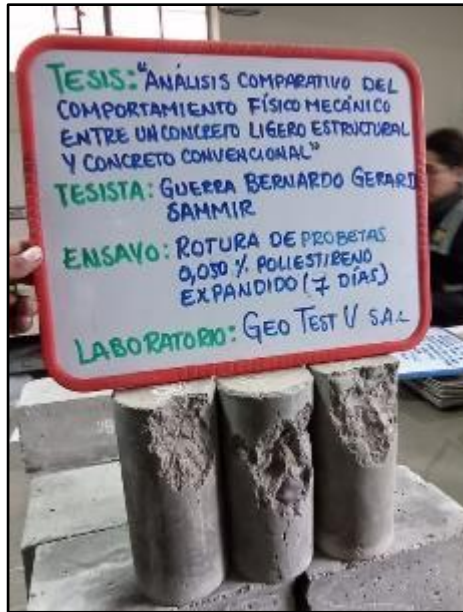 TESIS: "ANÁLISIS COMPARATIVO DEL
COMPORTAMIENTO FÍSICO MECÁNICO
ENTRE UN CONCRETO LIGERO ESTRUCTURAL
Y CONCRETO CONVENCIONAL"
TESISTA: GUERRA BERNARDO GERARD
SAMMIR
ENSAYO: ROTURA DE PROBETAS
0,050 % POLIESTIRENO
EXPANDIDO (7 DÍAS)
LABORATORIO: GEO TEST V SAC